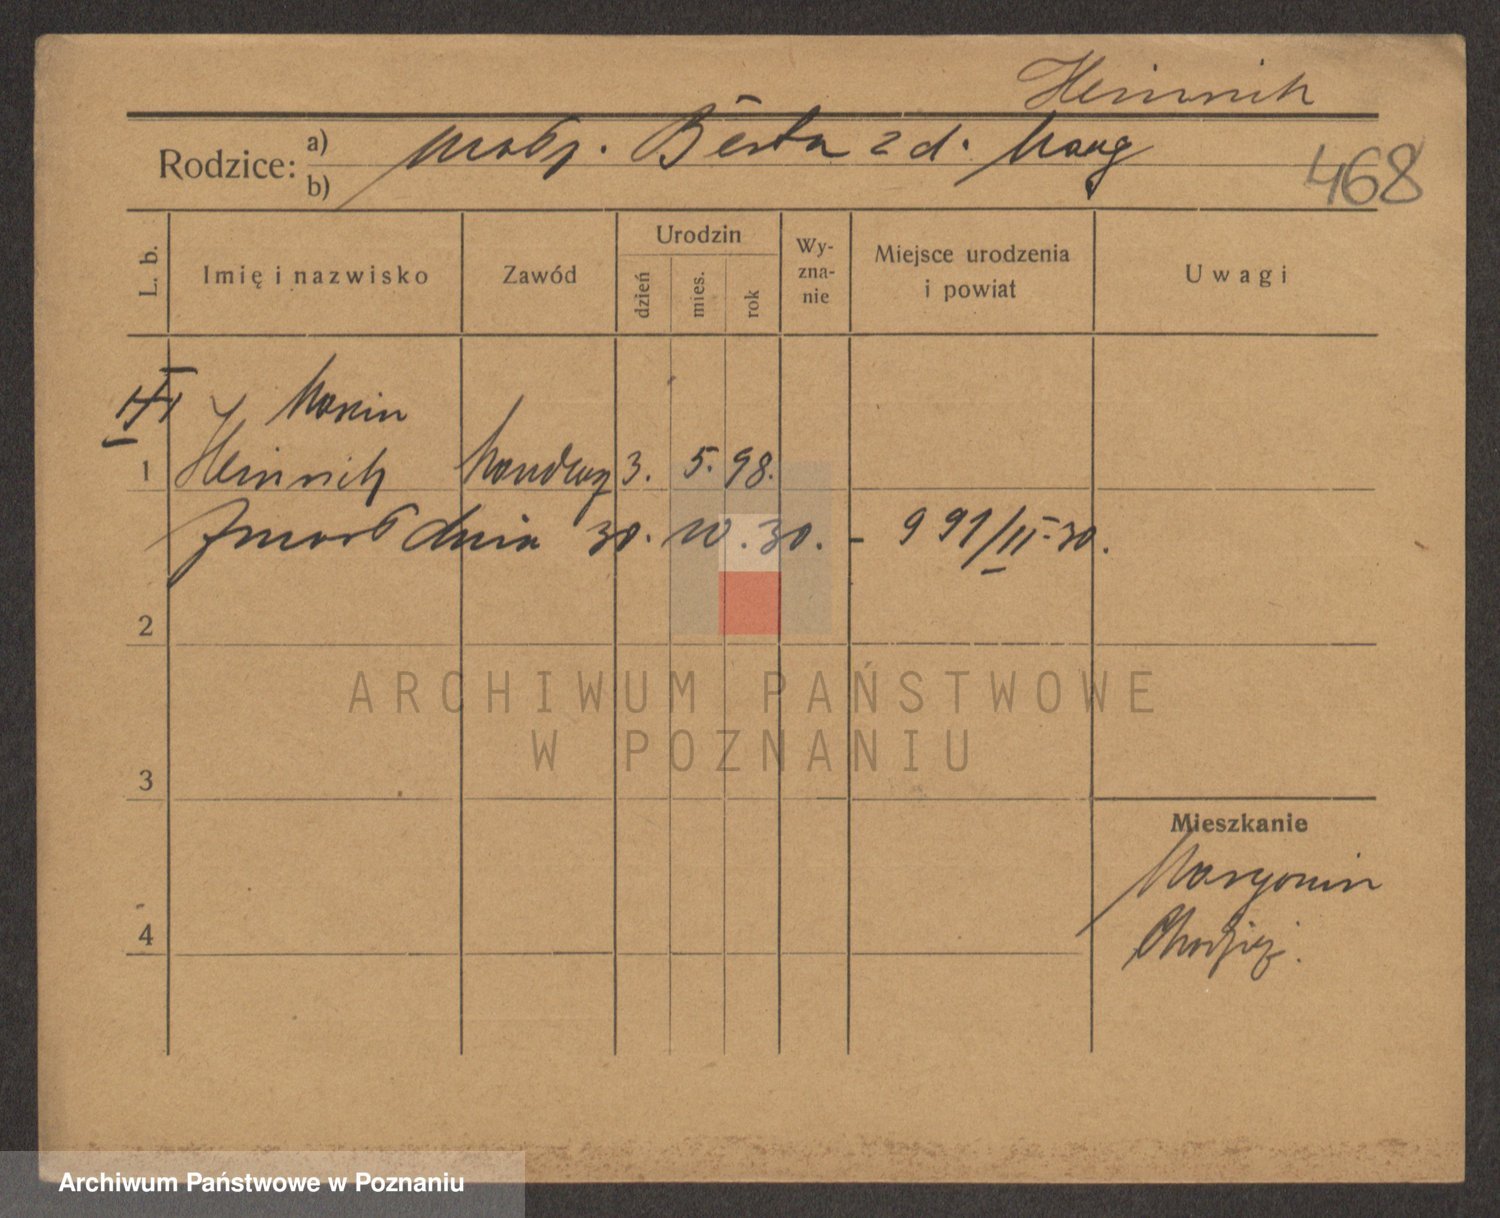 Heinrich
Rodzice: a) Małż. Berta z d.
b)
468
L. b.
Imię i nazwisko
Zawód
Urodzin
dzień
mies.
rok
Wy-
zna-
nie
Miejsce urodzenia
i powiat
Uwagi
1 Heinrich 3. 5. 98.
Zmarł dnia 30. 10. 30. - 991/II-30.
2
ARCHIWUM PAŃSTWOWE
W POZNANIU
3
Mieszkanie
Margonin
Chodzież.
4
Archiwum Państwowe w Poznaniu